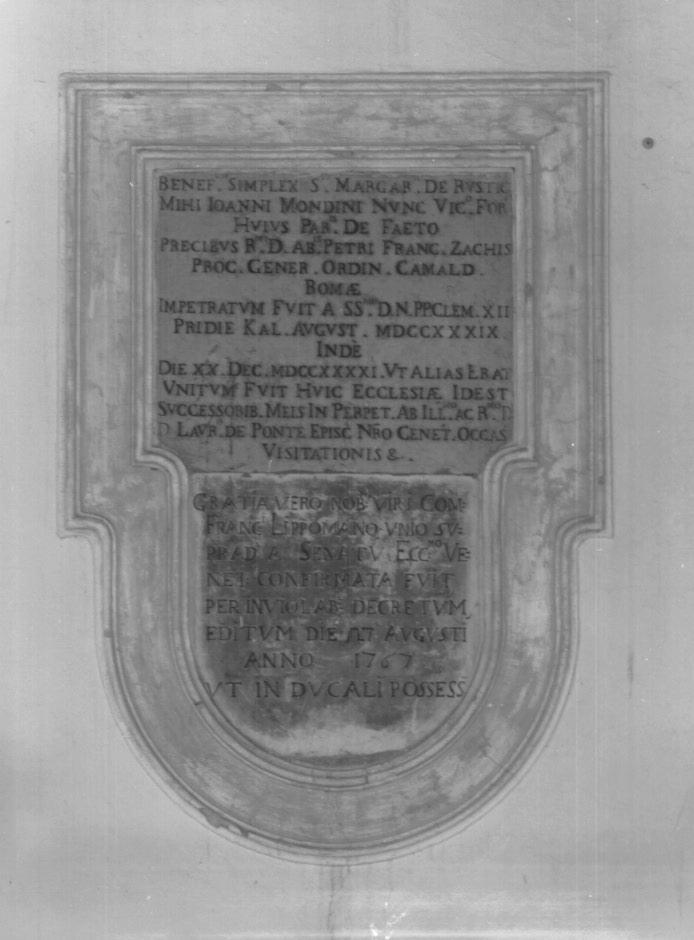 BENEF.^M SIMPLEX S.^Æ MARGAR.^Æ DE RVSTIC
MIHI IOANNI MONDINI NVNC VIC.^O FOR
HVIVS PAR.^Æ DE FAETO
PRECIBVS R.^MI D. AB.^IS PETRI FRANC. ZACHIS
PROC. GENER. ORDIN. CAMALD.
ROMÆ
IMPETRATVM FVIT A SS.^MO D.N.PPCLEM.XII
PRIDIE KAL. AVGVST. MDCCXXXIX
INDÈ
DIE XX. DEC. MDCCXXXXI. VT ALIAS ERAT
VNITVM FVIT HVIC ECCLESIÆ IDEST
SVCCESSORIB. MEIS IN PERPET. AB ILL.^MO AC R.^MO D.
D LAVR.^O DE PONTE EPISC NRO CENET. OCCAS
VISITATIONIS &.
GRATIA VERO NOB. VIRI COM:
FRANC LIPPOMANO VNIO SV-
PRAD.^A A SENATV ECC.^MO VE-
NET: CONFIRMATA FVIT
PER INVIOLAB: DECRETVM
EDITVM DIE AVGVSTI
ANNO 1767
VT IN DVCALI POSSESS